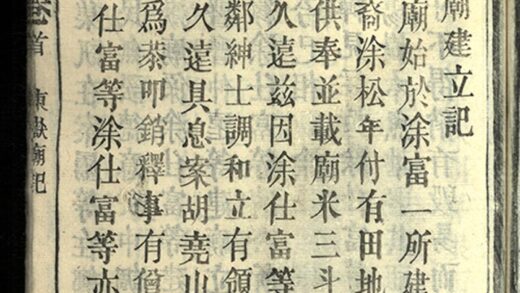 廟建立記
廟始於涂富一所建
裔涂松年付有田地
供奉並載廟米三斗
久遠茲因涂仕富等
鄰紳士調和立有領
久遠具息案胡堯山
爲恭叩銷釋事有僧
仕富等涂仕富等亦
卷首 東嶽廟記